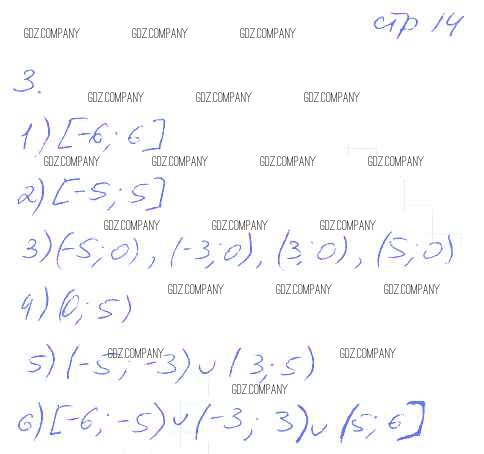 стр 14
GDZ.COMPANY GDZ.COMPANY GDZ.COMPANY
3.
GDZ.COMPANY GDZ.COMPANY GDZ.COMPANY
1) [-6; 6]
GDZ.COMPANY GDZ.COMPANY GDZ.COMPANY GDZ.COMPANY
2) [-5; 5]
GDZ.COMPANY GDZ.COMPANY GDZ.COMPANY
3) (-5; 0), (-3; 0), (3; 0), (5; 0)
GDZ.COMPANY GDZ.COMPANY GDZ.COMPANY
4) (0; 5)
GDZ.COMPANY GDZ.COMPANY
5) (-5; -3) ∪ (3; 5)
GDZ.COMPANY
6) [-6; -5) ∪ (-3; 3) ∪ (5; 6]